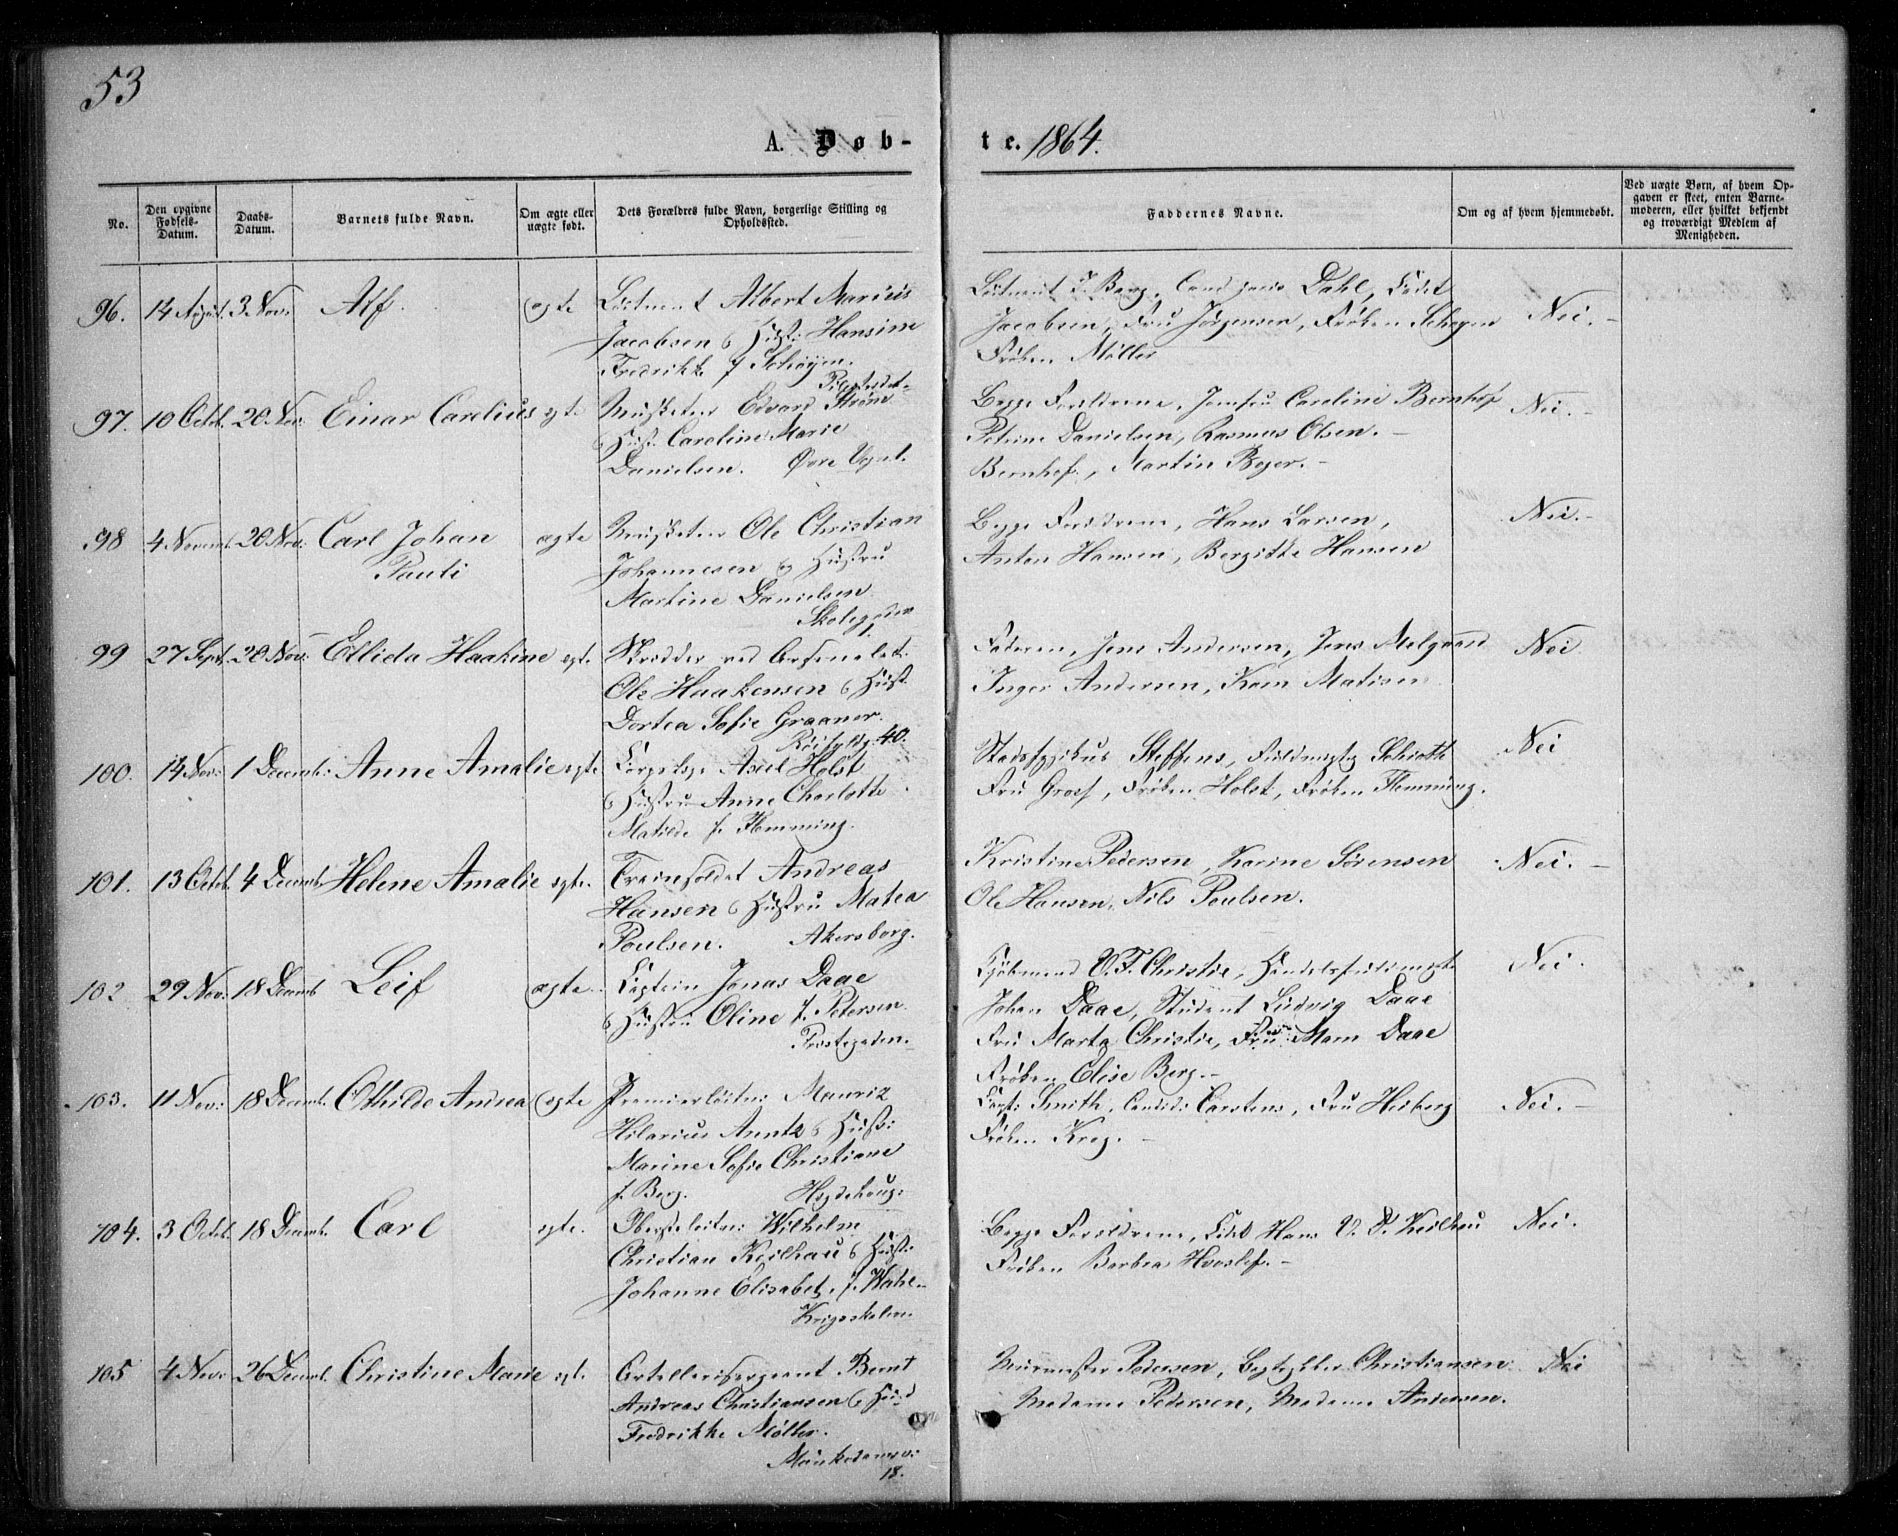 53
A. Døb-
te. 1864.
No.
Den opgivne Fødsels-Datum.
Daabs-Datum.
Barnets fulde Navn.
Om ægte eller uægte født.
Dets Forældres fulde Navn, borgerlige Stilling og Opholdssted.
Faddernes Navne.
Om og af hvem hjemmedøbt.
Ved uægte Børn, af hvem Opgaven er skeet, enten Barnemoderen, eller hvilket bekjendt og troværdigt Medlem af Menigheden.
96. 14 August 3 Nov: Alf. ægte Løitnant Albert Marius
Jacobsen & Hust: Hansine
Fredrikke f Schøyen.
Pilestrædet
Løitnant Berg, Cand Dahl,
Jacobsen, Fru Jørgensen, Frøken
Frøken Møller
Nei.
97. 10 Octob. 20 Nov: Einar Carelius ægte Musketer Edvard Strøm
& Hust. Caroline Marie
Danielsen. Øvre Vognl.
Begge Forældrene, Jomfru Caroline Bernhof
Petrine Danielsen, Rasmus Olsen.
Bernhof, Martin Boyer.
Nei.
98 4 Novemb. 20 Nov: Carl Johan ægte Musketer Ole Christian
Pauli
Johannesen & Hustru
Martine Danielsen
Skolegaden
Begge Forældrene, Hans Larsen,
Anton Hansen, Bergitte Hansen
Nei.
99 27 Sept. 20 Nov: Ellida Haakine ægte Skrædder ved Arsenalet
Ole Haakensen & Hust.
Dortea Sofie Graaner.
40.
Faderen, Jens Andersen, Jens Melgaard
Inger Andersen, Karn Matisen
Nei
100. 14 Nov: 1 Decemb: Anne Amalie ægte Corpslæge Axel Holst
& Hustru Anne Charlotte
Matilde f. Flemming.
Stadsfysikus Steffens, Fuldmægtig Schiøtt
Fru Groef, Frøken Holst, Frøken Flemming.
Nei
101. 13 Octob. 4 Decemb Helene Amalie ægte. Trainsoldat Andreas
Hansen & Hustru Matea
Poulsen. Akersborg.
Kristine Pedersen, Karine Sørensen
Ole Hansen, Nils Poulsen.
Nei.
102 29 Nov: 18 Decemb Leif ægte. Captein Jonas Daae
& Hustru Oline f. Petersen.
Prestegaden.
Kjøbmand V. F. Christie, Handelsfuldmægt.
Johan Daae, Student Ludvig Daae
Fru Marta Christie, Fru Daae
Frøken Elise Berg.
Nei.
103. 11 Nov: 18 Decemb. Othilde Andrea ægte Premierløitn: Mauriz
Hilarius Arntz & Hust:
Marine Sofie Christiane
f. Berg. Hegdehaug:
Capt: Smith, Candid: Carstens, Fru Heiberg
Frøken Krog.
Nei.
104. 3 Octob. 18 Decemb. Carl ægte. Oberstløitn: Wilhelm
Christian Keilhau & Hust:
Johanne Elisabet, f. Wahl
Krigsskolen.
Begge Forældrene, Hans V. Keilhau
Frøken Barbra Hvoslef.
Nei.
105 4 Nov: 26 Decemb. Christine Marie ægt. Artillerisergeant Bernt
Andreas Christiansen & Hust
Fredrikke Møller.
Munkedamsv:
18.
Murmester Pedersen, Christiansen
Madame Pedersen, Madame Andersen.
Nei